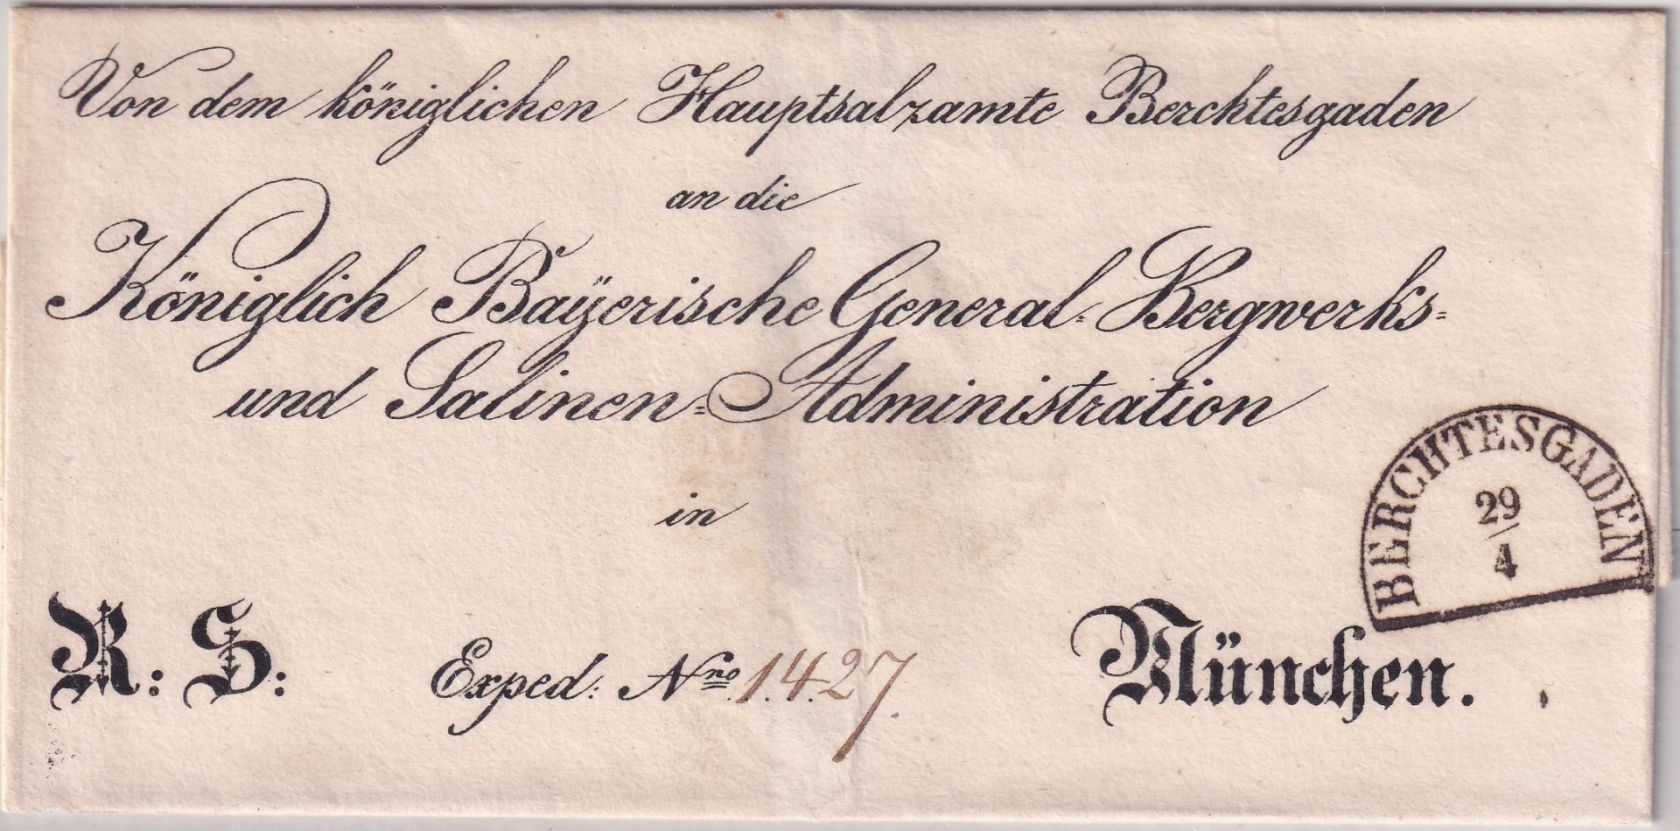 Von dem königlichen Hauptsalzamte Berchtesgaden
an die
Königlich Baÿerische General-Bergwerks-
und Salinen-Administration
in
BERCHTESGADEN
29
4
R: S: Exped: Nro 1427. München.